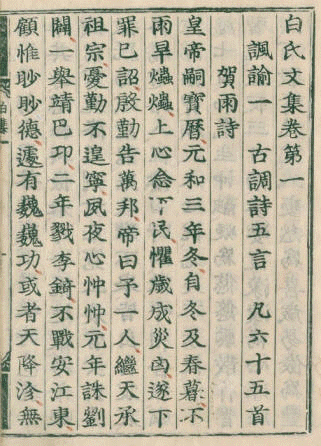 白氏文集卷第一
諷諭一　古調詩五言　凡六十五首
賀雨詩
皇帝嗣寶曆元和三年冬自冬及春暮不
雨旱爞爞上心念下民懼歲成災凶遂下
罪已詔殷勤告萬邦帝曰予一人繼天承
祖宗憂勤不遑寧夙夜心忡忡元年誅劉
闢一舉靖巴邛二年戮李錡不戰安江東
顧惟眇眇德遽有巍巍功或者天降沴無